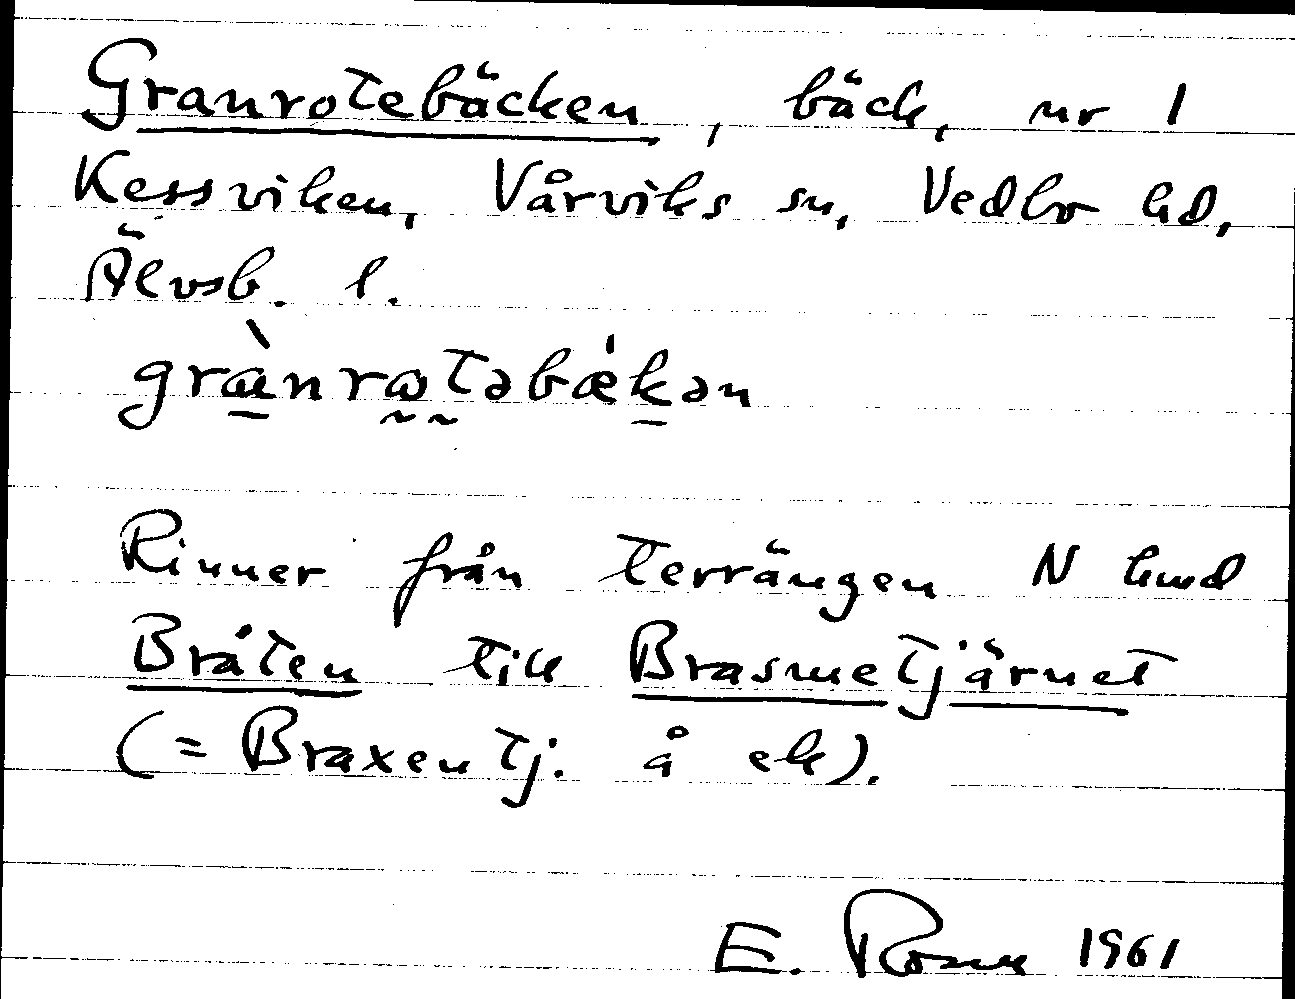 Granrotebäcken, bäck, nr 1
Kessviken, Vårviks sn, Vedbo hd,
Älvsb. l.
grànrɷtəbǽkən
Rinner från terrängen N hmd
Bråten till Brasmetjärnet
(= Braxentj. å ek).
E. 1961